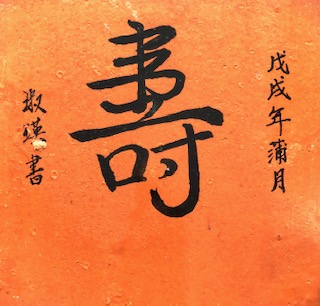 戊戌年蒲月
壽
淑瑛書